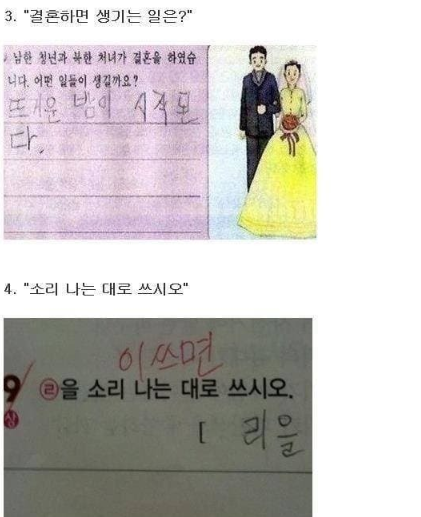 3. "결혼하면 생기는 일은?"
남한 청년과 북한 처녀가 결혼을 하였습
니다. 어떤 일들이 생길까요?
뜨거운 밤이 시작된
다.
4. "소리 나는 대로 쓰시오"
이쓰면
9 ㉣을 소리 나는 대로 쓰시오.
상 [ 리을